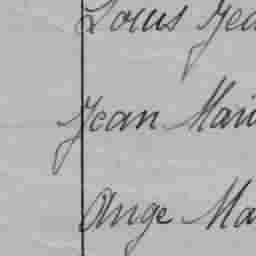 Louis Jea
Jean Mari
Ange Ma